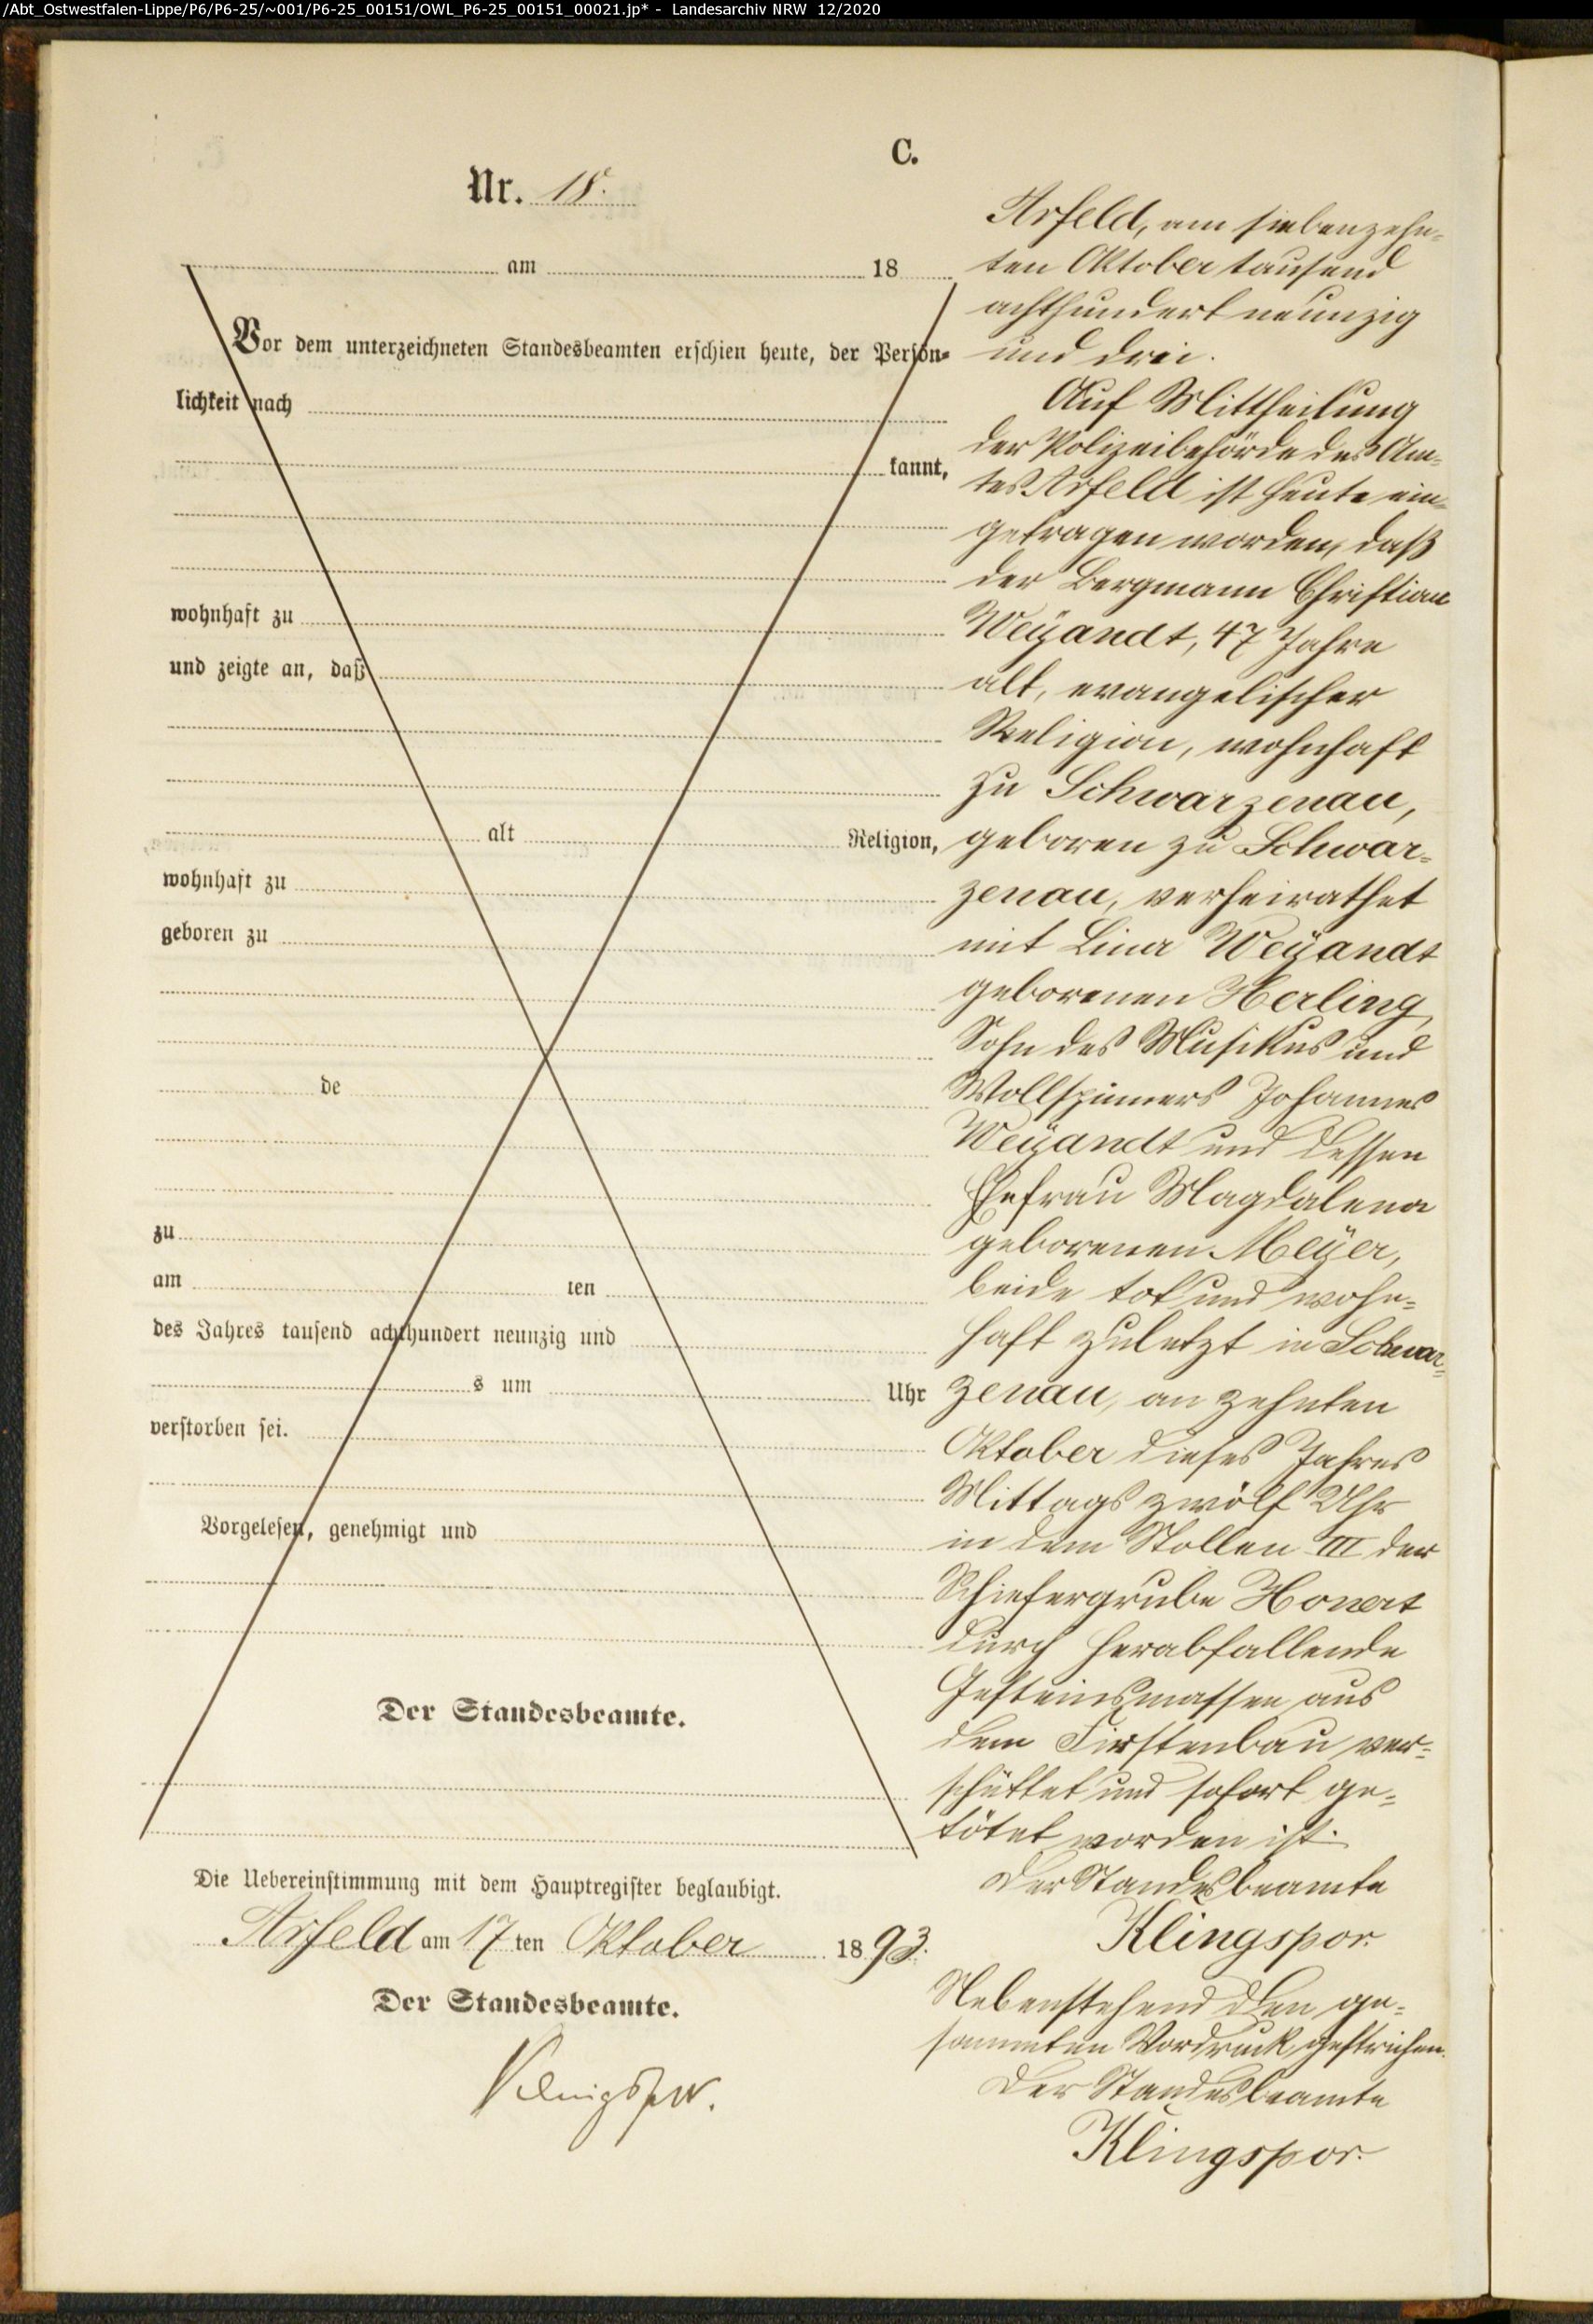 /Abt_Ostwestfalen-Lippe/P6/P6-25/~001/P6-25_00151/OWL_P6-25_00151_00021.jp* - Landesarchiv NRW 12/2020
C.
Nr. 18.
am 18
Vor dem unterzeichneten Standesbeamten erschien heute, der Persön=
lichkeit nach
kannt,
wohnhaft zu
und zeigte an, daß
alt Religion,
wohnhaft zu
geboren zu
de
zu
am ten
des Jahres tausend achthundert neunzig und
s um Uhr
verstorben sei.
Vorgelesen, genehmigt und
Der Standesbeamte.
Die Uebereinstimmung mit dem Hauptregister beglaubigt.
Arfeld am 17 ten Oktober 1893.
Der Standesbeamte.
Klingspor.
Arfeld, am siebenzehn=
ten Oktober tausend
achthundert neunzig
und drei.
Auf Mittheilung
der Polizeibehörde des Am=
tes Arfeld ist heute ein=
getragen worden, daß
der Bergmann Christian
Weÿandt, 47 Jahre
alt, evangelischer
Religion, wohnhaft
zu Schwarzenau,
geboren zu Schwar=
zenau, verheirathet
mit Lina Weÿandt
geborenen Herling,
Sohn des Musikus und
Wollspinners Johannes
Weÿandt und dessen
Ehefrau Magdalena
geborenen Meÿer,
beide tot und wohn=
haft zuletzt in Schwar=
zenau, an zehnten
Oktober dieses Jahres
Mittags zwölf Uhr
in dem Stollen III der
Schiefergrube Honert
durch herabfallende
Gesteinsmassen aus
dem Firstenbau ver=
schüttet und sofort ge=
tötet worden ist.
Der Standesbeamte
Klingspor.
Nebenstehend den ge=
sammten Vordruck gestrichen.
Der Standesbeamte
Klingspor.